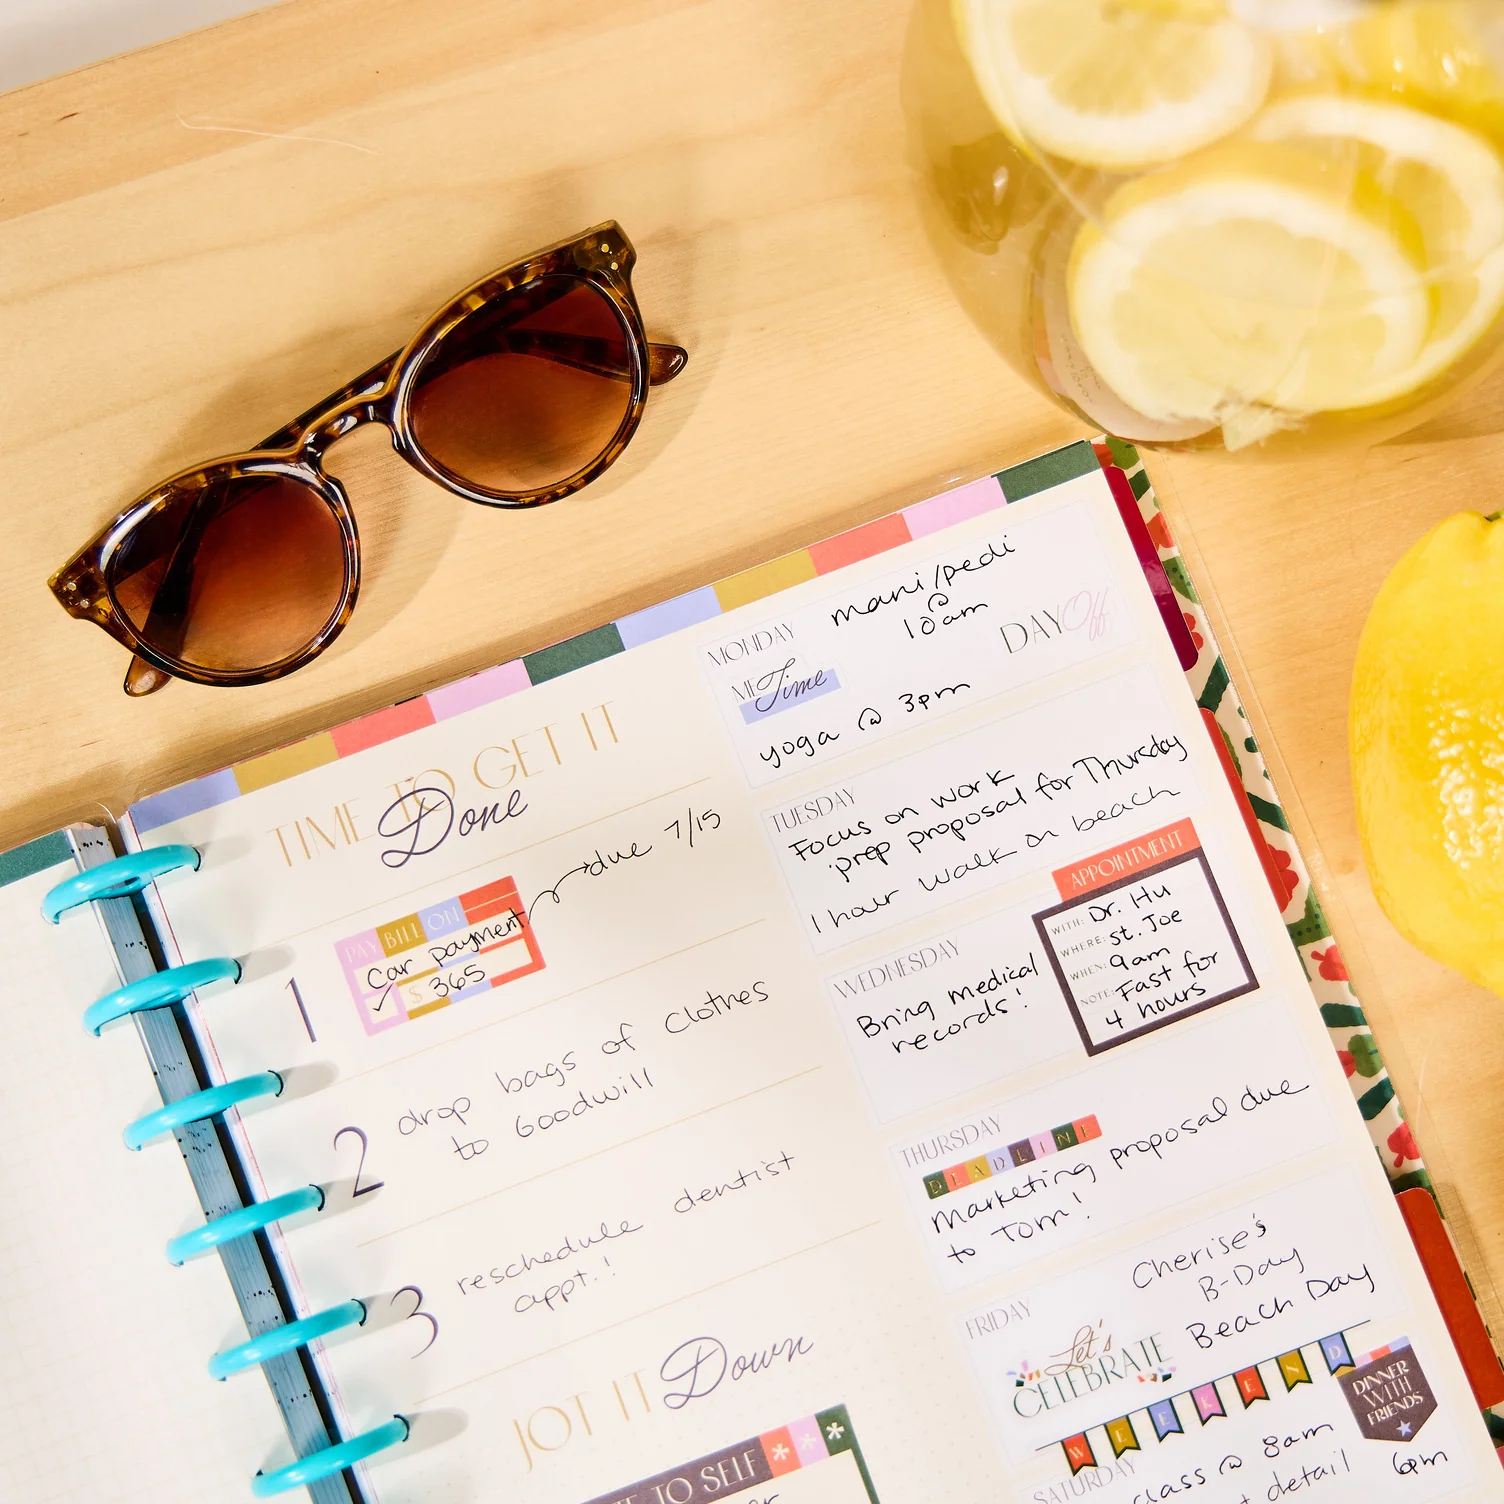 TIME TO GET IT
Done
1
PAY BILL ON
car payment
✓ $ 365
due 7/15
2
drop bags of clothes
to Goodwill
3
reschedule dentist
appt.!
JOT IT Down
TO SELF
MONDAY
mani/pedi
@
10am
DAY Off
ME Time
yoga @ 3pm
TUESDAY
Focus on work
prep proposal for Thursday
1 hour walk on beach
WEDNESDAY
Bring medical
records!
APPOINTMENT
WITH: Dr. Hu
WHERE: St. Joe
WHEN: 9am
NOTE: Fast for
4 hours
THURSDAY
DEADLINE
marketing proposal due
to Tom!
FRIDAY
Cherise's
B-Day
Beach Day
Let's
CELEBRATE
WEEKEND
DINNER
WITH
FRIENDS
6pm
SATURDAY
class @ 8am
detail